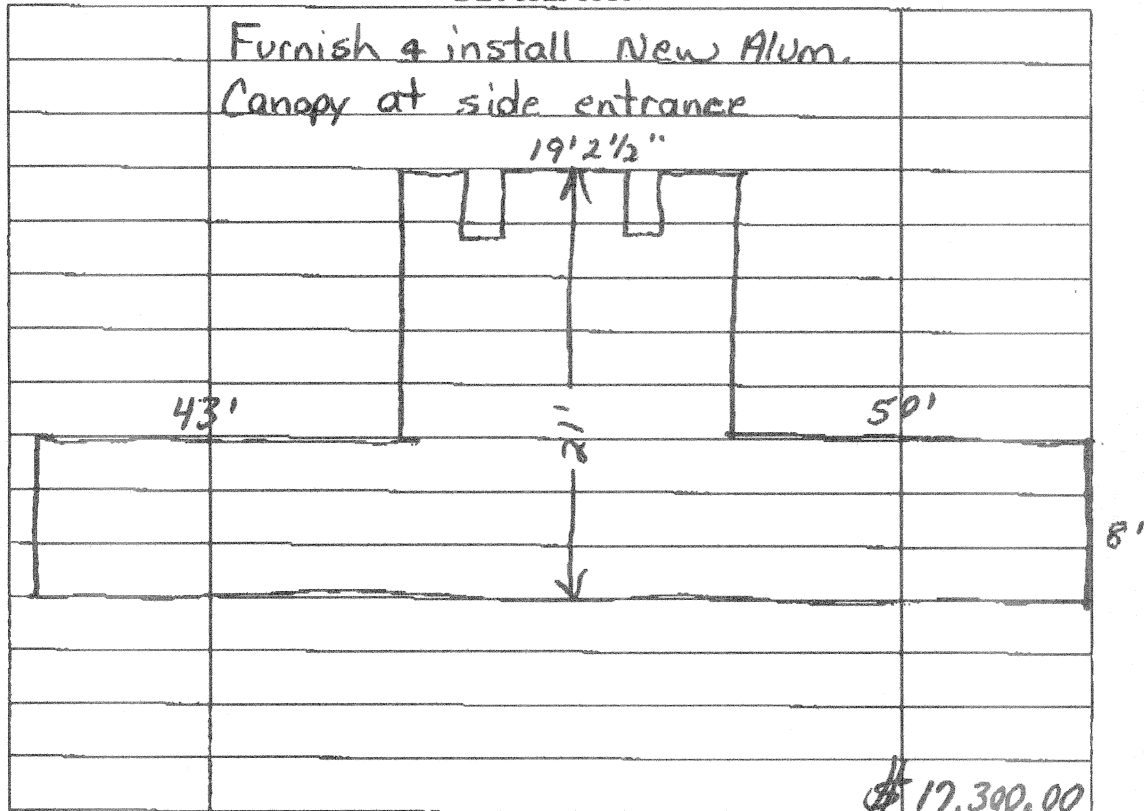 Furnish & install New Alum.
Canopy at side entrance
19'2½"
43'
50'
21'
8'
$17,300.00